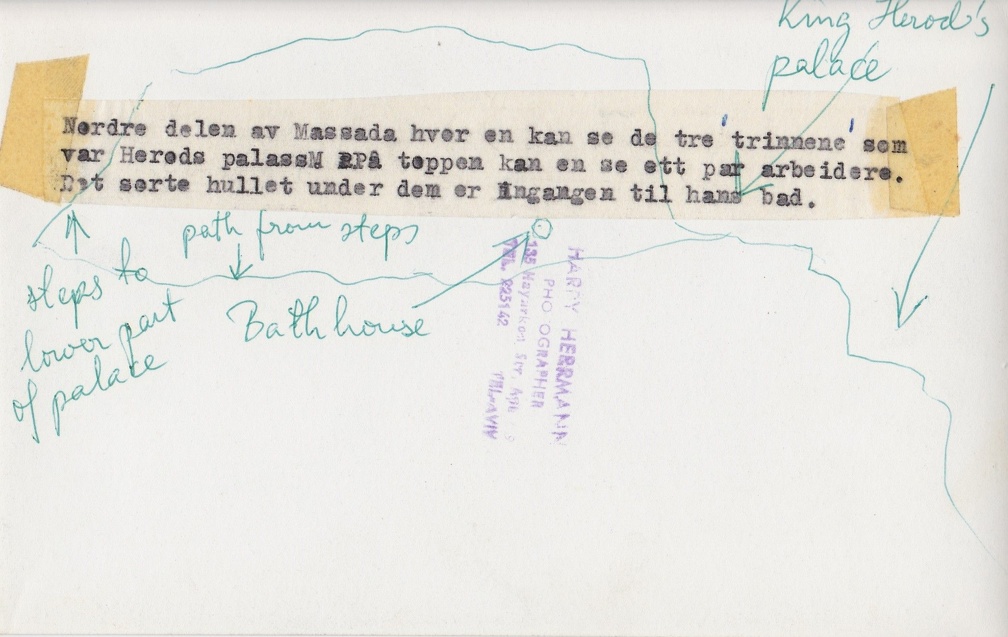 King Herod's
palace
Nordre delen av Massada hvor en kan se de tre 'trinnene' som
var Herods palassM PPå toppen kan en se ett par arbeidere.
Det sorte hullet under dem er ingangen til hans bad.
path from steps
steps to
lower part
of palace
Bathhouse
HARRY HERRMANN
PHOTOGRAPHER
135 Hayarkon Str.
TEL. 225142
TEL-AVIV